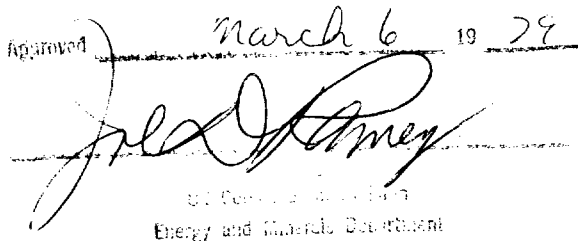 Approved March 6 19 79
Joe D Ramey
Energy and Minerals Department